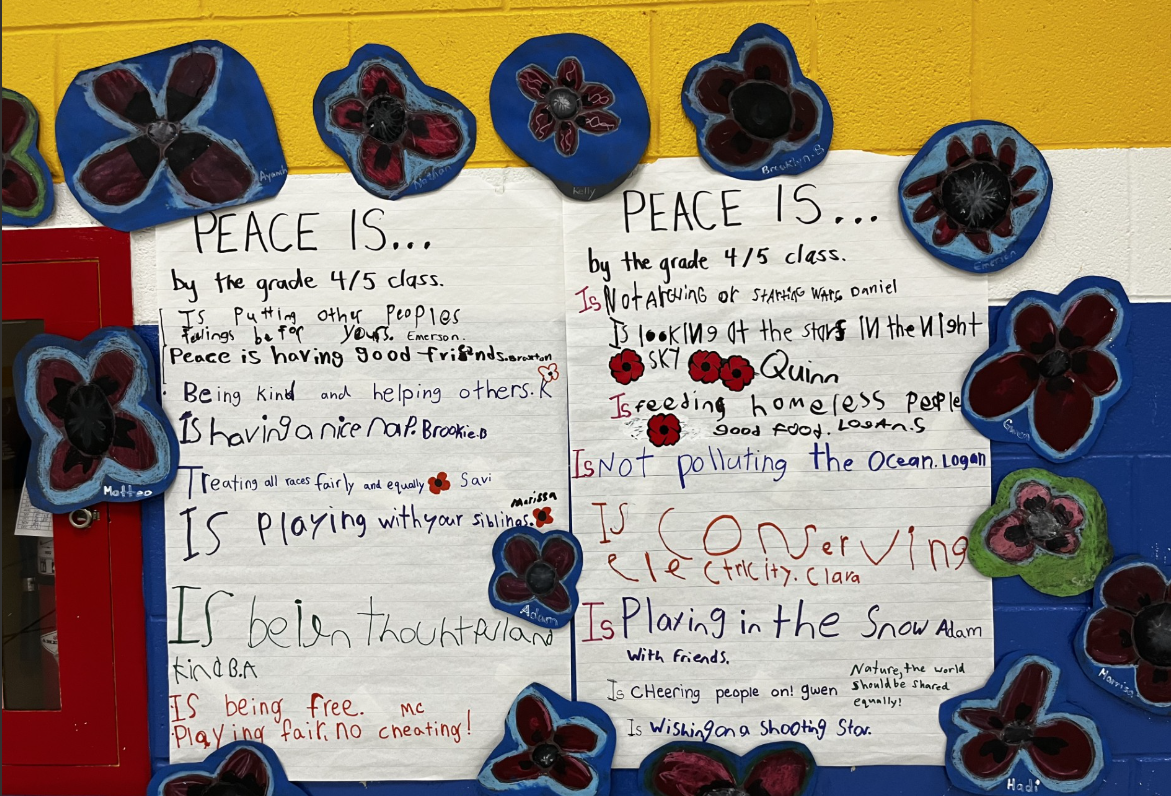 PEACE IS...
by the grade 4/5 class.
Is Putting other Peoples
feelings befor yours. Emerson.
Peace is having good friends. Braxton
Being kind and helping others. K
Is having a nice nap. Brookie.B
Treating all races fairly and equally Savi
Marissa
Is Playing with your siblings.
Is beien thouhtfull and
kind B.A
IS being free. mc
Playing fair, no cheating!
PEACE IS...
by the grade 4/5 class.
Is Not Arguing or starting wars Daniel
Is looking at the stars in the Night
SKY Quinn
Is feeding homeless people
good food. Logan.S
Is Not polluting the Ocean. Logan
Is Conserving
electricity. Clara
Is Playing in the Snow Adam
With friends.
Is CHeering people on! gwen
Nature, the world
should be shared
equally!
Is Wishing on a Shooting Star.
Ayanah
Nathan
Kelly
Brooklyn.B
Emerson
Matteo
Adam
Gwen
Marriza
Hadi